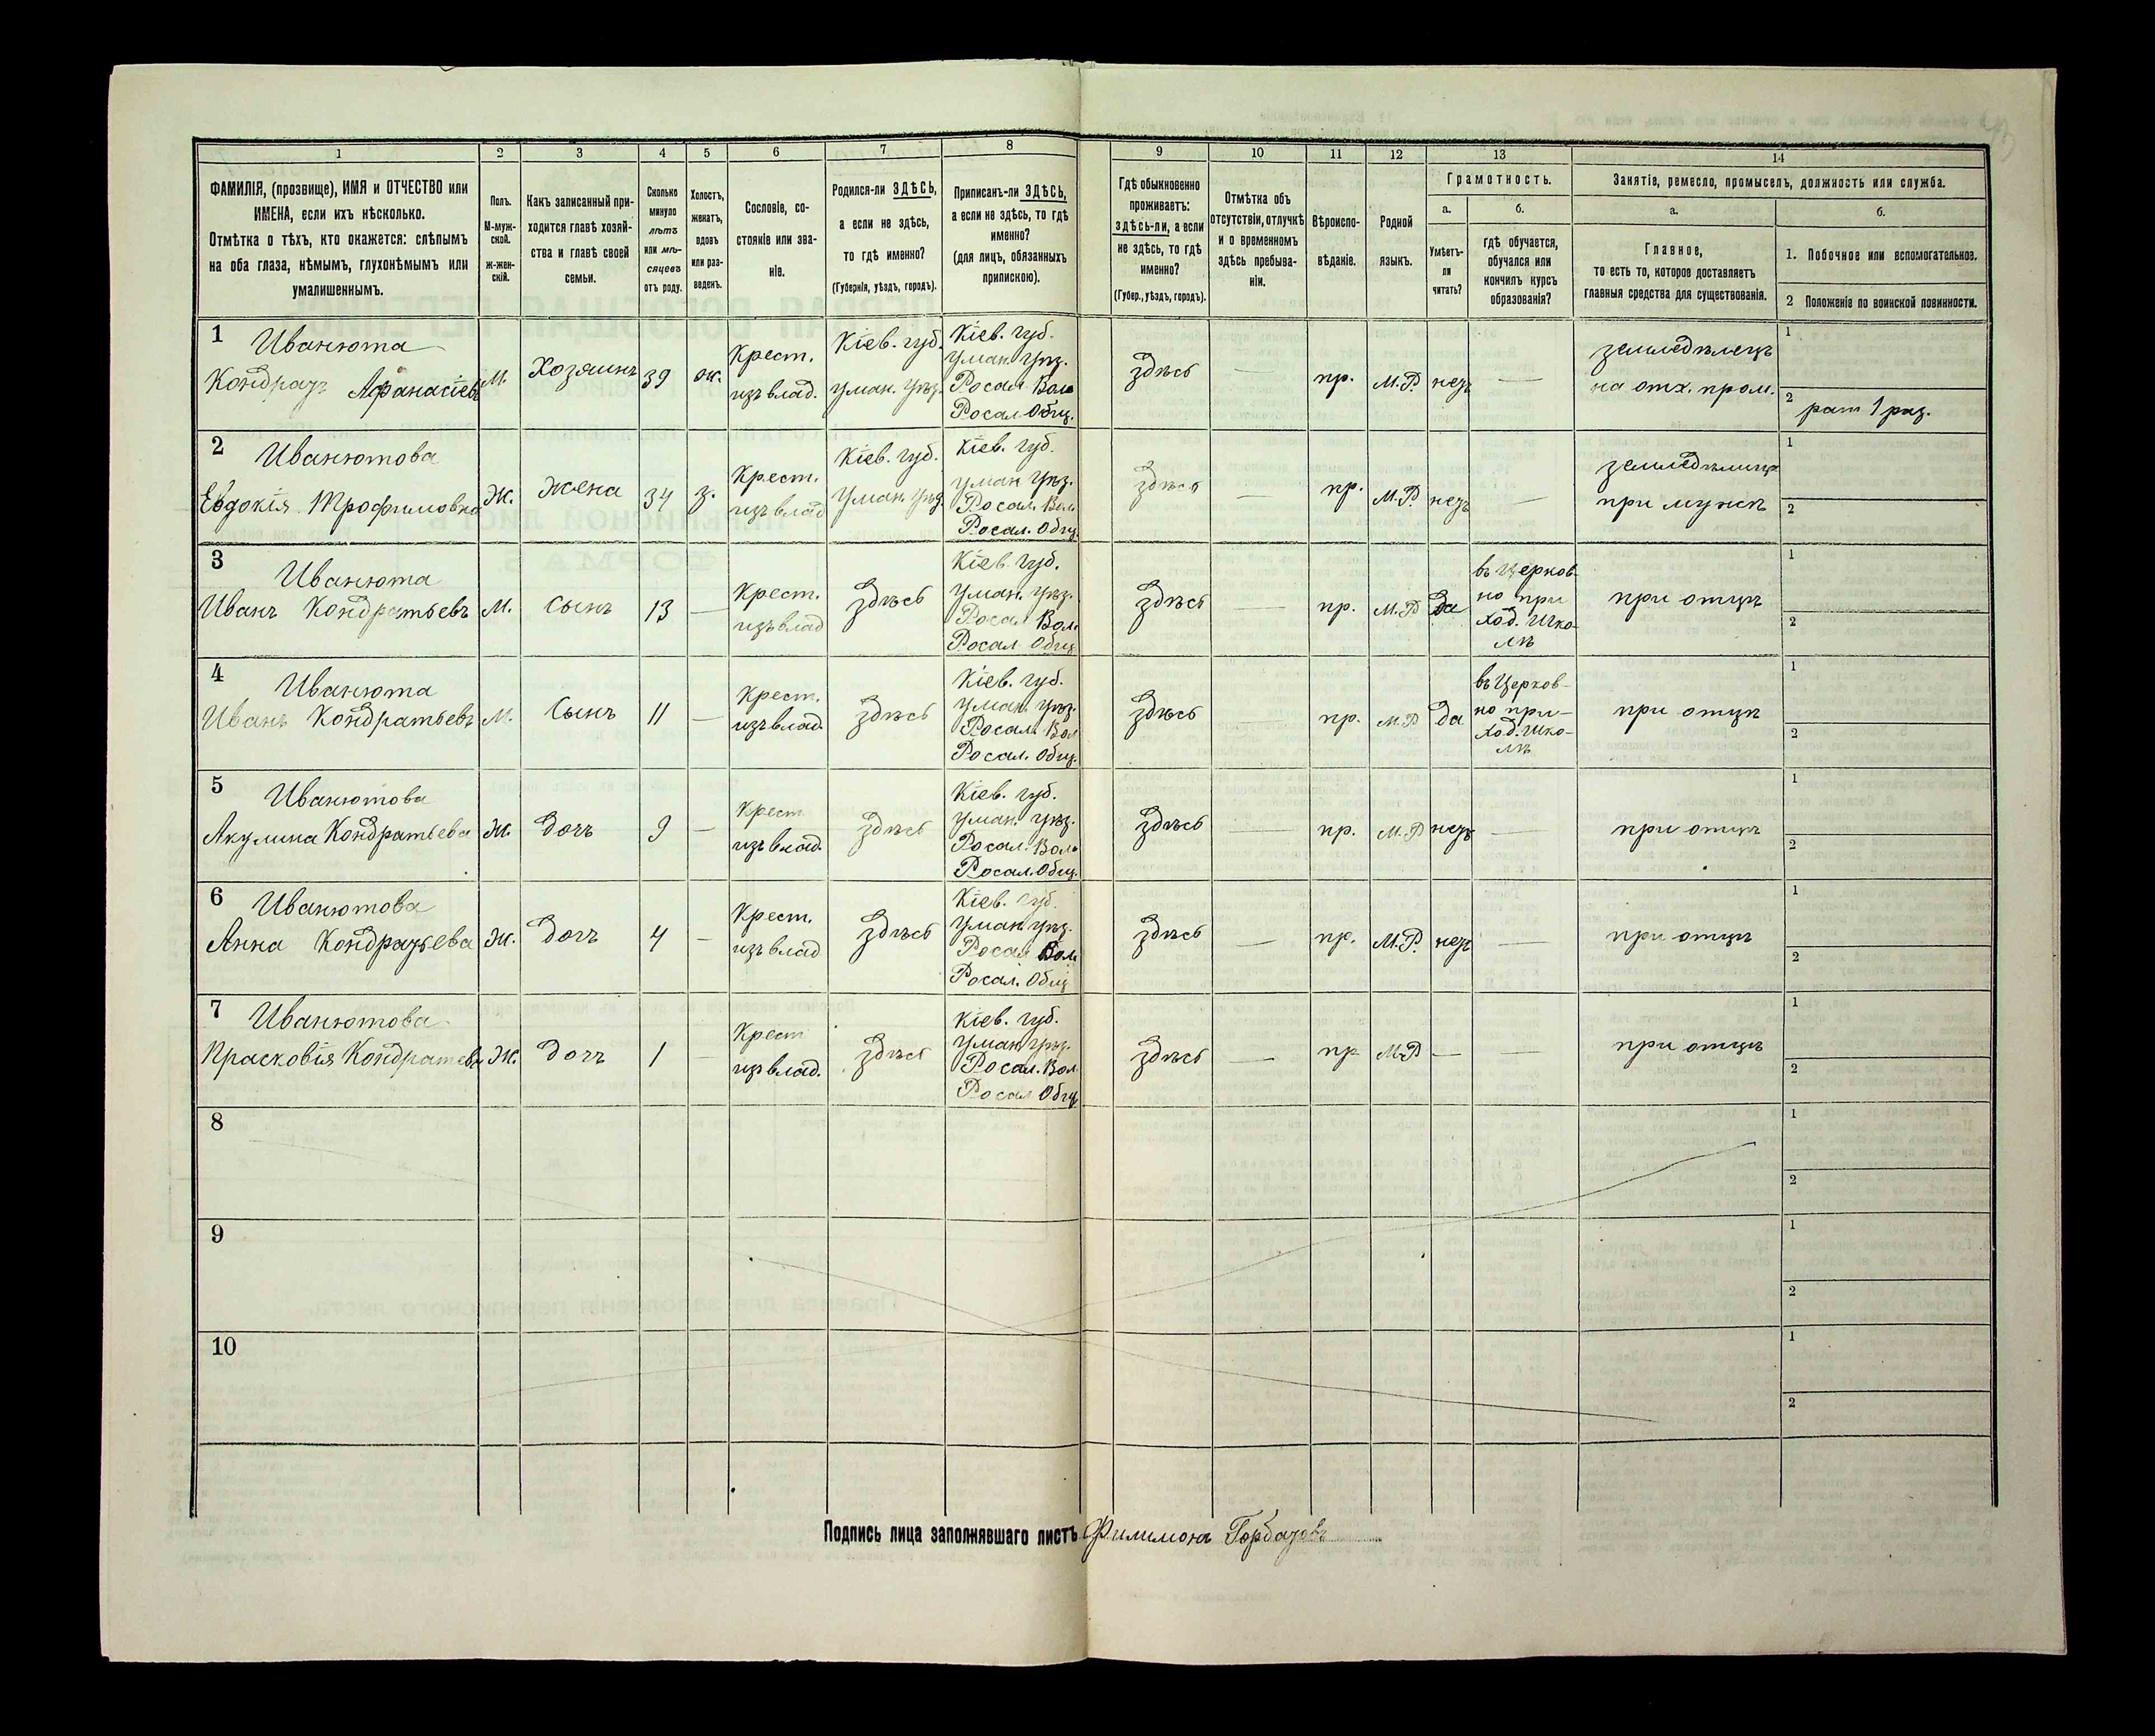 1 2 3 4 5 6 7 8 9 10 11 12 13 14
ФАМИЛІЯ, (прозвище), ИМЯ и ОТЧЕСТВО или
ИМЕНА, если ихъ нѣсколько.
Отмѣтка о тѣхъ, кто окажется: слѣпымъ
на оба глаза, нѣмымъ, глухонѣмымъ или
умалишеннымъ.
Полъ.
М-муж-
ской.
ж-жен-
скій.
Какъ записанный при-
ходится главѣ хозяй-
ства и главѣ своей
семьи.
Сколько
минуло
лѣтъ
или мѣ-
сяцевъ
отъ роду.
Холостъ,
женатъ,
вдовъ
или раз-
веденъ.
Сословіе, со-
стояніе или зва-
ніе.
Родился-ли ЗДѢСЬ,
а если не здѣсь,
то гдѣ именно?
(Губернія, уѣздъ, городъ).
Приписанъ-ли ЗДѢСЬ,
а если не здѣсь, то гдѣ
именно?
(для лицъ, обязанныхъ
припискою).
Гдѣ обыкновенно
проживаетъ:
здѣсь-ли, а если
не здѣсь, то гдѣ
именно?
(Губер., уѣздъ, городъ).
Отмѣтка объ
отсутствіи, отлучкѣ
и о временномъ
здѣсь пребыва-
ніи.
Вѣроиспо-
вѣданіе.
Родной
языкъ.
Грамотность.
а.
Умѣетъ-
ли
читать?
б.
гдѣ обучается,
обучался или
кончилъ курсъ
образованія?
Занятіе, ремесло, промыселъ, должность или служба.
а.
Главное,
то есть то, которое доставляетъ
главныя средства для существованія.
б.
1. Побочное или вспомогательное.
2 Положеніе по воинской повинности.
1
Иванюта
Кондратъ Афанасіевъ
М.
Хозяинъ
39
ж.
Крест.
изъ влад.
Кіев. губ.
Уман. Уѣз.
Кіев. губ.
Уман. Уѣз.
Росал. Вол.
Росал. Общ.
здѣсь
—
пр.
М.Р.
нетъ
—
земледѣлецъ
на отх. пром.
1
2
рат 1 раз.
2
Иванютова
Евдокія Трофимовна
Ж.
Жена
34
з.
Крест.
изъ влад
Кіев. губ.
Уман. Уѣз
Кіев. губ.
Уман. Уѣз.
Росал. Вол.
Росал. Общ.
здѣсь
—
пр.
М.Р.
нетъ
—
при мужѣ
1
2
3
Иванюта
Иванъ Кондратьевъ
М.
Сынъ
13
—
Крест.
изъ влад
здѣсь
Кіев. губ.
Уман. Уѣз.
Росал. Вол.
Росал. Общ.
здѣсь
—
пр.
М.Р
да
въ Церков-
но при
ход. Шко-
лѣ
при отцѣ
1
2
4
Иванюта
Иванъ Кондратьевъ
М.
Сынъ
11
—
Крест.
изъ влад.
здѣсь
Кіев. губ.
Уман. Уѣз.
Росал. Вол
Росал. Общ.
здѣсь
—
пр.
М.Р
да
въ Церков-
но при-
ход. Шко-
лѣ
при отцѣ
1
2
5
Иванютова
Акулина Кондратьева
Ж.
Дочъ
9
—
Крест
изъ влад.
здѣсь
Кіев. губ.
Уман. Уѣз.
Росал. Вол.
Росал. Общ.
здѣсь
—
пр.
М.Р
нетъ
—
при отцѣ
1
2
6
Иванютова
Анна Кондратьева
Ж.
Дочъ
4
—
Крест.
изъ влад
здѣсь
Кіев. губ.
Уман. Уѣз.
Росал. Вол.
Росал. Общ
здѣсь
—
пр.
М.Р.
нетъ
—
при отцѣ
1
2
7
Иванютова
Прасковія Кондратева
Ж.
Дочъ
1
—
Крест
изъ влад.
здѣсь
Кіев. губ.
Уман. Уѣз.
Росал. Вол.
Росал. Общ.
здѣсь
—
пр
М.Р
—
—
при отцѣ
1
2
8
1
2
9
1
2
10
1
2
Подпись лица заполнявшаго листъ Филимонъ Горбатовъ